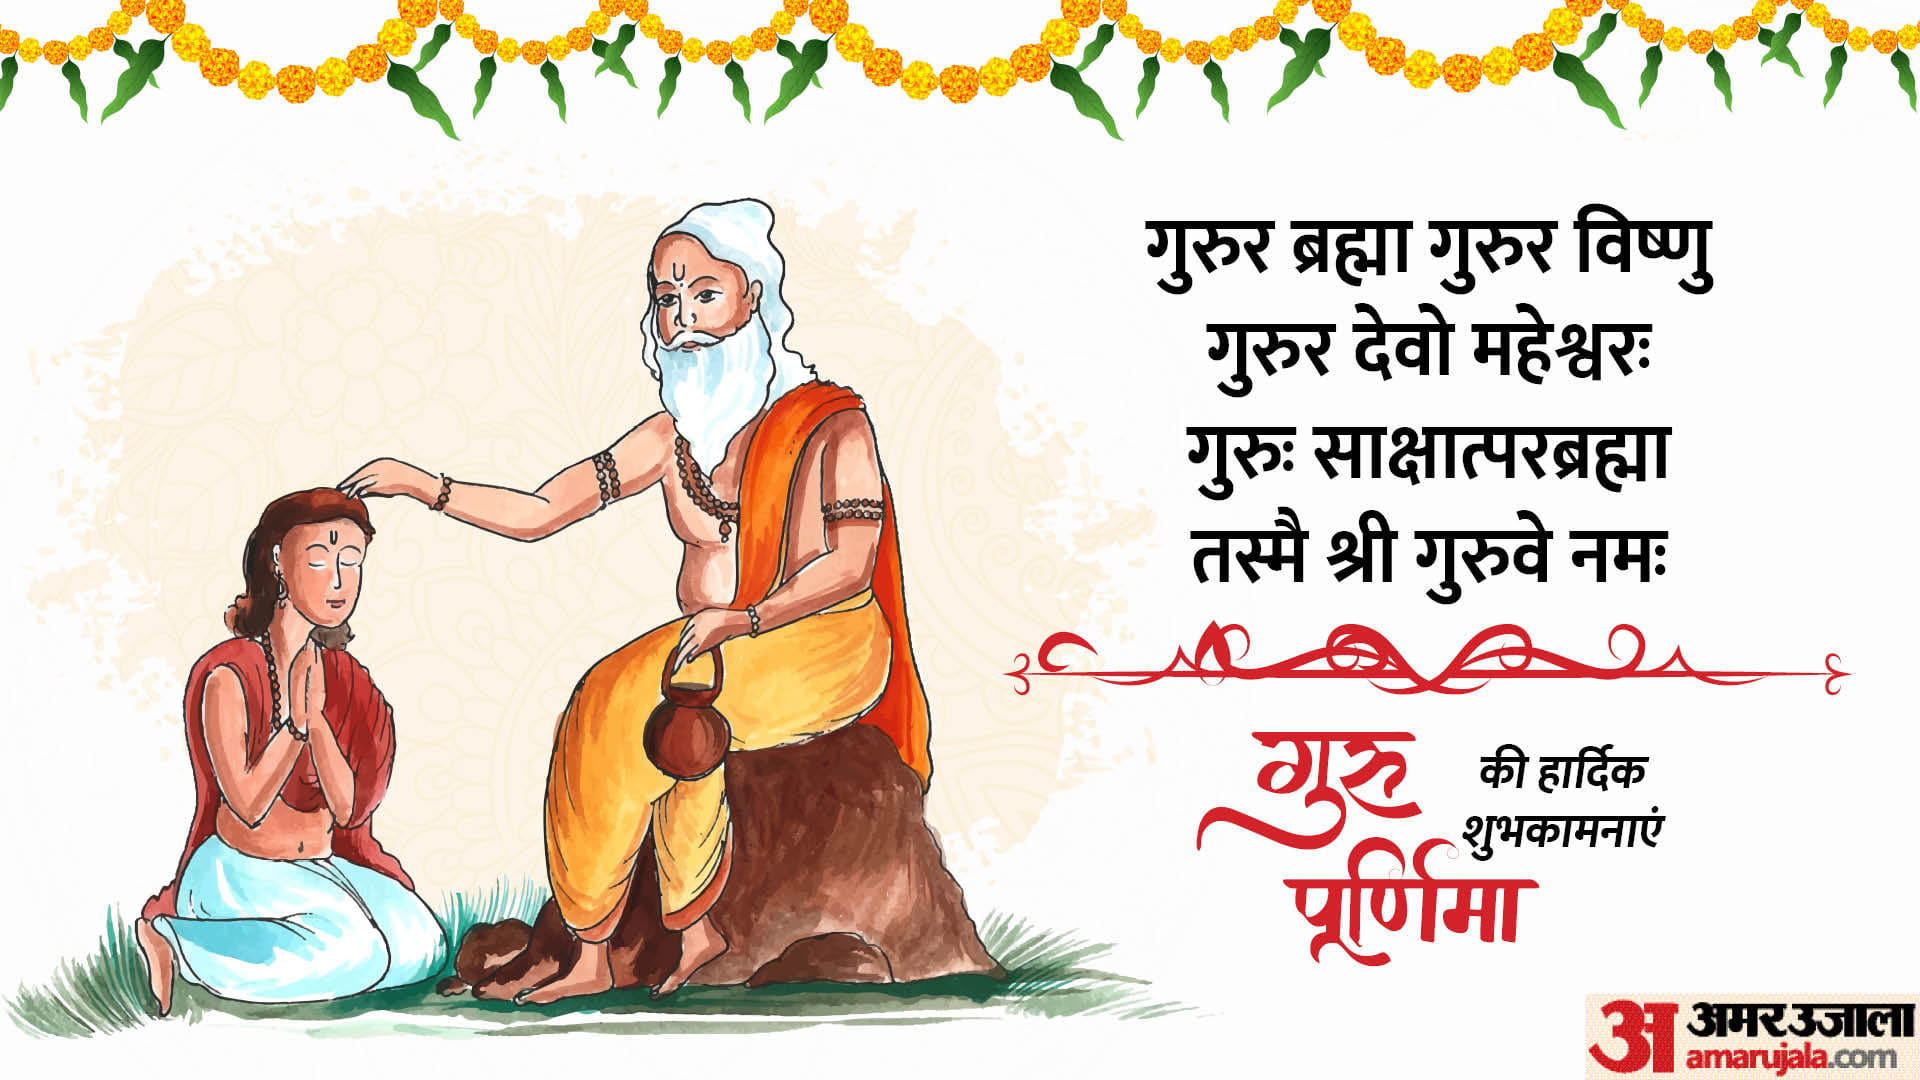 गुरुर ब्रह्मा गुरुर विष्णु
गुरुर देवो महेश्वरः
गुरुः साक्षात्परब्रह्मा
तस्मै श्री गुरुवे नमः
गुरु
पूर्णिमा
की हार्दिक
शुभकामनाएं
अ अमर उजाला
amarujala.com